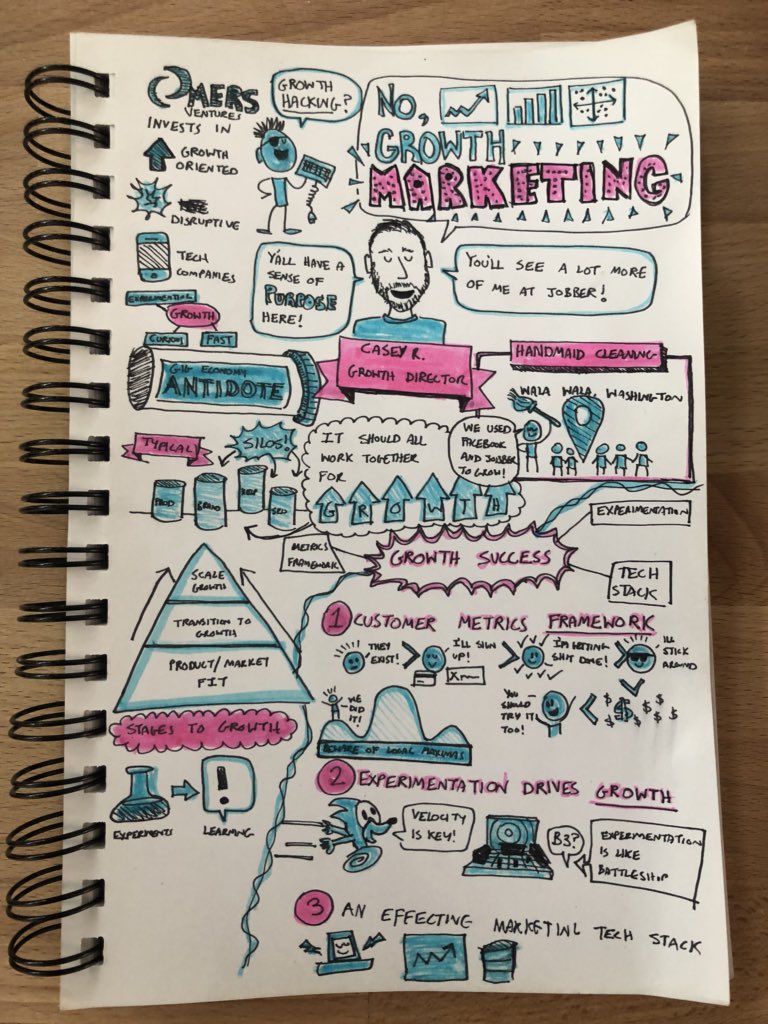 OMERS
VENTURES
INVESTS IN
GROWTH
ORIENTED
DISRUPTIVE
TECH
COMPANIES
GROWTH
HACKING?
NO,
GROWTH
MARKETING
Y'ALL HAVE A
SENSE OF
PURPOSE
HERE!
YOU'LL SEE A LOT MORE
OF ME AT JOBBER!
EXPERIMENTAL
GROWTH
CURIOUS
FAST
GIG ECONOMY
ANTIDOTE
CASEY R.
GROWTH DIRECTOR
HANDMAID CLEANING
WALA WALA, WASHINGTON
WE USED
FACEBOOK
AND JOBBER
TO GROW!
TYPICAL
SILOS!
PROD
BRAND
SEO
IT SHOULD ALL
WORK TOGETHER
FOR
GROWTH
METRICS
FRAMEWORK
GROWTH SUCCESS
EXPERIMENTATION
TECH
STACK
SCALE
GROWTH
TRANSITION TO
GROWTH
PRODUCT/MARKET
FIT
STAGES TO GROWTH
EXPERIMENTS
LEARNING
1 CUSTOMER METRICS FRAMEWORK
THEY
EXIST!
I'LL SIGN
UP!
I'M GETTING
SHIT DONE!
ILL
STICK
AROUND
YOU
SHOULD
TRY IT
TOO!
WE
DID
IT!
BEWARE OF LOCAL MAXIMAS
2 EXPERIMENTATION DRIVES GROWTH
VELOCITY
IS KEY!
B3?
EXPERIMENTATION
IS LIKE
BATTLESHIP
3 AN EFFECTING MARKETING TECH STACK